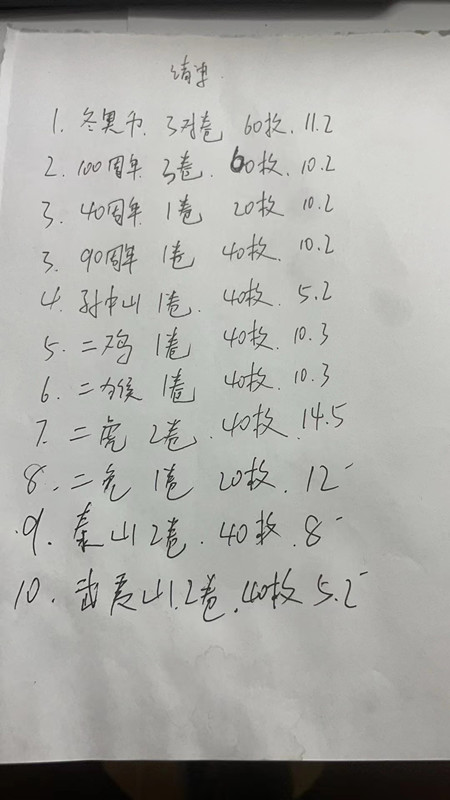 清单
1. 冬奥币. 3对卷 60枚. 11.2
2. 100周年 3卷. 60枚. 10.2
3. 40周年 1卷 20枚 10.2
3. 90周年 1卷 40枚. 10.2
4. 孙中山 1卷. 40枚. 5.2
5. 二鸡 1卷 40枚. 10.3
6. 二猴 1卷 40枚. 10.3
7. 二虎 2卷. 40枚. 14.5
8. 二兔 1卷 20枚. 12-
9. 泰山 2卷. 40枚. 8-
10. 武夷山. 2卷. 40枚 5.2-